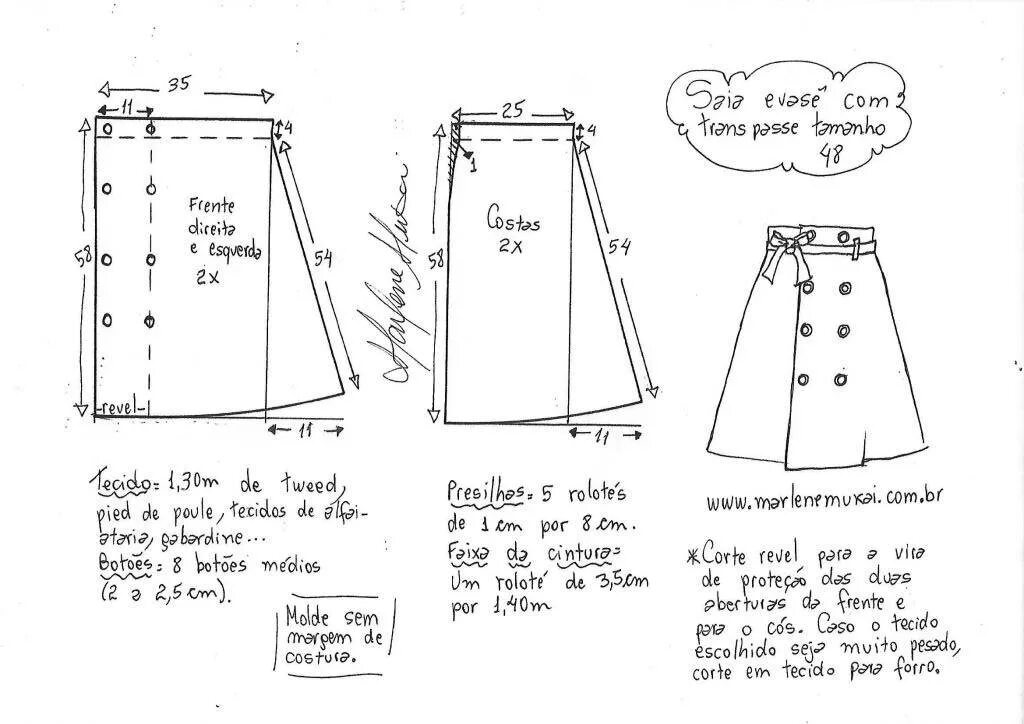 35
11
4
58
54
Frente
direita
e esquerda
2x
-revel-
11
Marlene Mukai
25
4
1
58
54
Costas
2x
11
Saia evasê com
transpasse tamanho
48
Tecido= 1,30m de tweed,
pied de poule, tecidos de alfai-
ataria, gabardine...
Botões= 8 botões médios
(2 a 2,5cm).
Molde sem
margem de
costura.
Presilhas= 5 rolotés
de 1cm por 8cm.
Faixa da cintura=
Um roloté de 3,5cm
por 1,40m
www.marlenemukai.com.br
*Corte revel para a vira
de proteção das duas
aberturas da frente e
para o cós. Caso o tecido
escolhido seja muito pesado,
corte em tecido para forro.